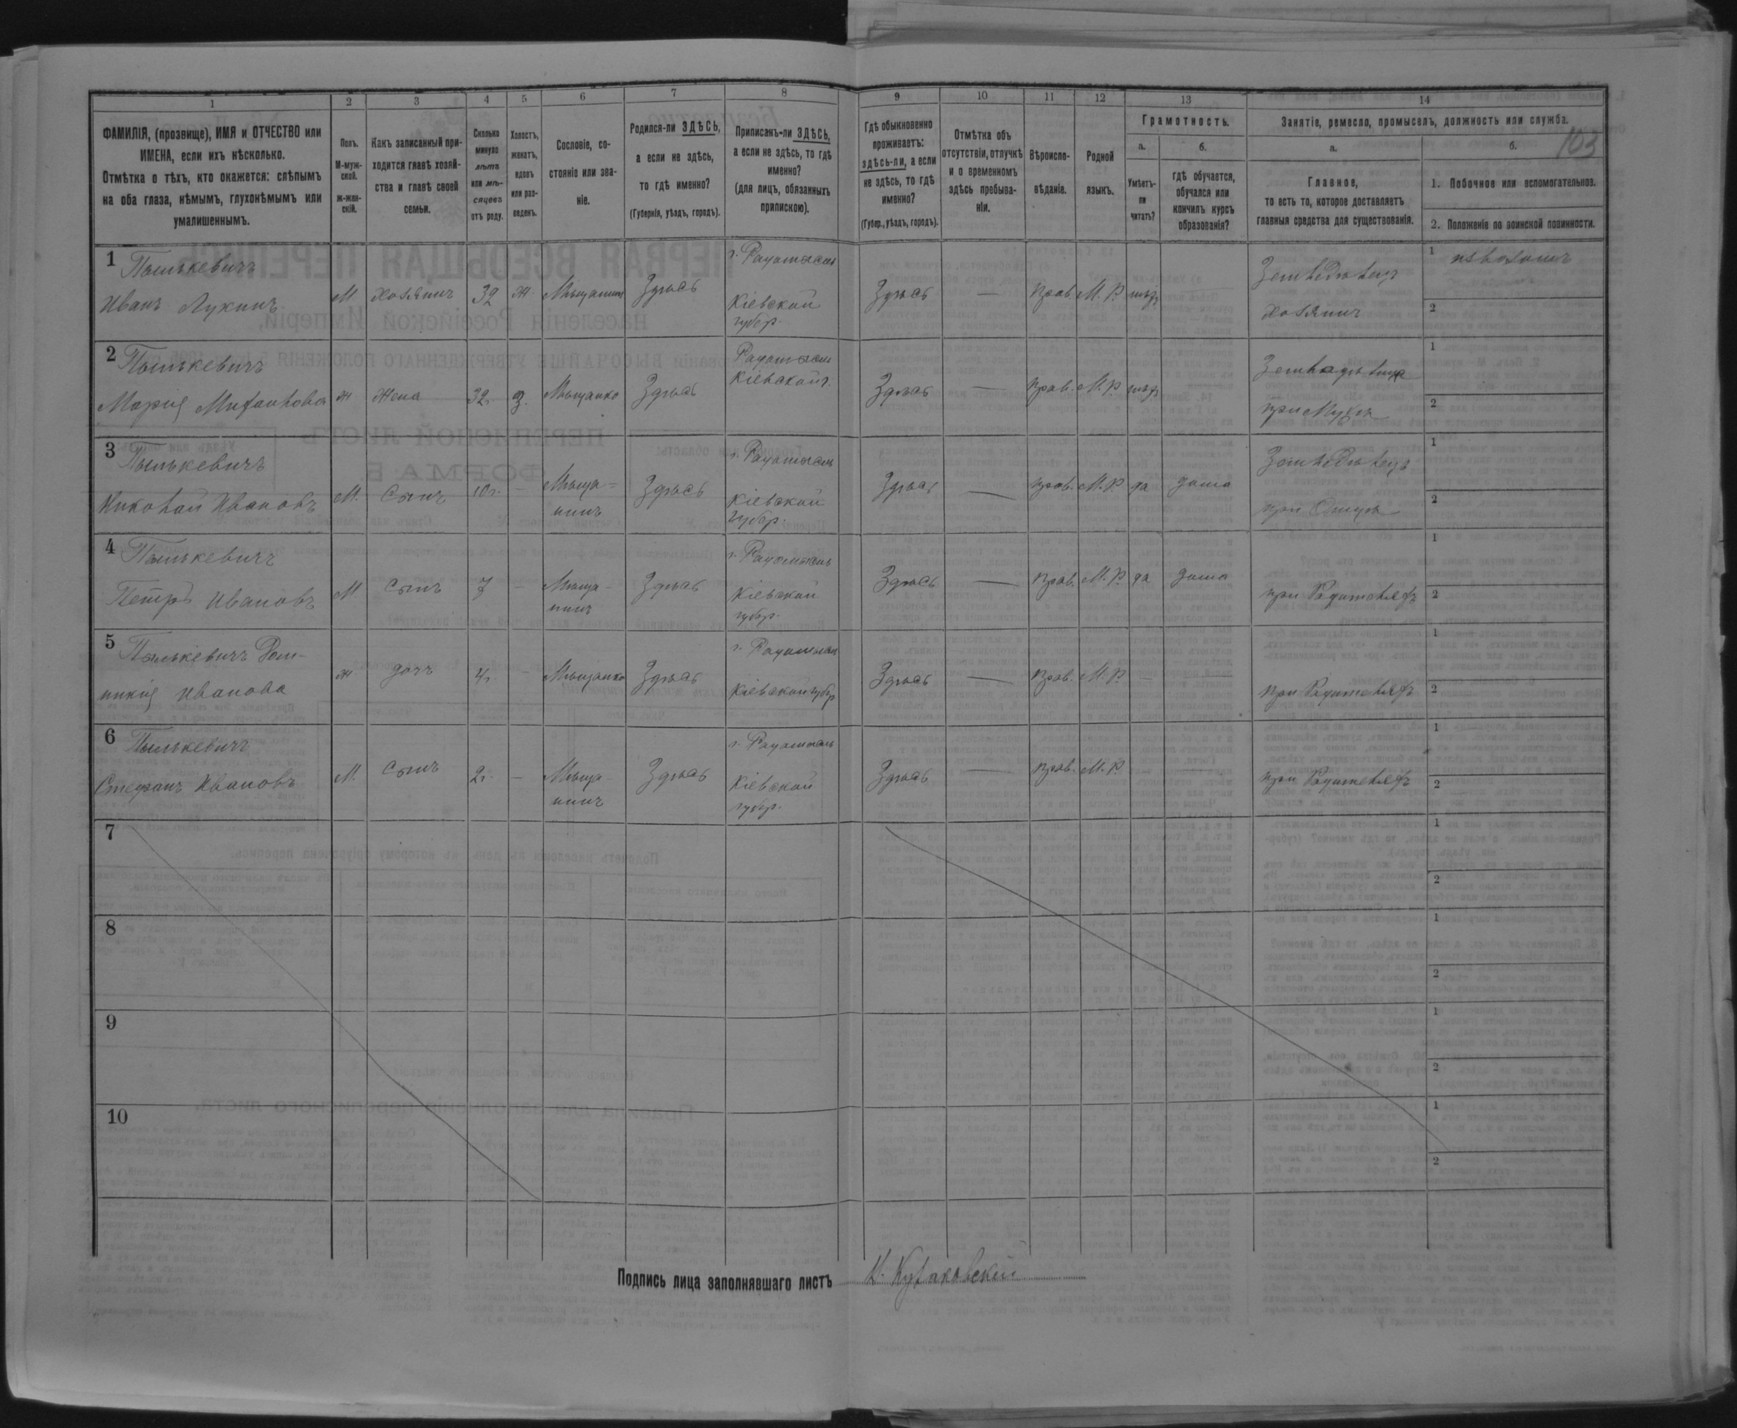 1 2 3 4 5 6 7 8 9 10 11 12 13 14
103
ФАМИЛІЯ, (прозвище), ИМЯ и ОТЧЕСТВО или
ИМЕНА, если ихъ нѣсколько.
Отмѣтка о тѣхъ, кто окажется: слѣпымъ
на оба глаза, нѣмымъ, глухонѣмымъ или
умалишеннымъ.
Полъ.
М-муж-
ской.
Ж-жен-
скій.
Какъ записанный при-
ходится главѣ хозяй-
ства и главѣ своей
семьи.
Сколько
минуло
лѣтъ
или мѣ-
сяцевъ
отъ роду.
Холостъ,
женатъ,
вдовъ
или раз-
веденъ.
Сословіе, со-
стояніе или зва-
ніе.
Родился-ли ЗДѢСЬ,
а если не здѣсь,
то гдѣ именно?
(Губернія, уѣздъ, городъ).
Приписанъ-ли ЗДѢСЬ,
а если не здѣсь, то гдѣ
именно?
(для лицъ, обязанныхъ
припискою).
Гдѣ обыкновенно
проживаетъ:
здѣсь-ли, а если
не здѣсь, то гдѣ
именно?
(Губер., уѣздъ, городъ).
Отмѣтка объ
отсутствіи, отлучкѣ
и о временномъ
здѣсь пребыва-
ніи.
Вѣроиспо-
вѣданіе.
Родной
языкъ.
Грамотность.
а.
Умѣетъ-
ли
читать?
б.
гдѣ обучается,
обучался или
кончилъ курсъ
образованія?
Занятіе, ремесло, промыселъ, должность или служба.
а.
Главное,
то есть то, которое доставляетъ
главныя средства для существованія.
б.
1. Побочное или вспомогательное.
2. Положеніе по воинской повинности.
1 Пылькевичъ г. Радомысль Земледѣлецъ 1 извозомъ
Иванъ Лукинъ М хозяинъ 32 ж Мѣщанинъ Здѣсь Кіевской губр. Здѣсь — Прав. М. Р. нѣтъ хозяинъ 2
2 Пылькевичъ Радомысль 1
Марія Михайлова ж жена 32. з. Мѣщанка Здѣсь Кіевской г. Здѣсь — Прав. М. Р. нѣтъ при Мужѣ 2
3 Пылькевичъ г. Радомысль Земледѣлецъ 1
Николай Ивановъ М. Сынъ 10 г. — Мѣща-нинъ Здѣсь Кіевской губр. Здѣсь — Прав. М. Р да дома при Отцѣ 2
4 Пылькевичъ г. Радомысль 1
Петръ Ивановъ М Сынъ 7 — Мѣща-нинъ Здѣсь Кіевской губр. Здѣсь — Прав. М. Р да дома при Родителяхъ 2
5 Пылькевичъ Дом- г. Радомысль 1
никія Иванова ж дочь 4 г. — Мѣщанка Здѣсь Кіевской губр Здѣсь — Прав. М. Р. — при Родителяхъ 2
6 Пылькевичъ г. Радомысль 1
Стефанъ Ивановъ М. Сынъ 2 г. — Мѣща-нинъ Здѣсь Кіевской губр. Здѣсь — Прав. М. Р — при Родителяхъ 2
7 1
2
8 1
2
9 1
2
10 1
2
Подпись лица заполнявшаго листъ